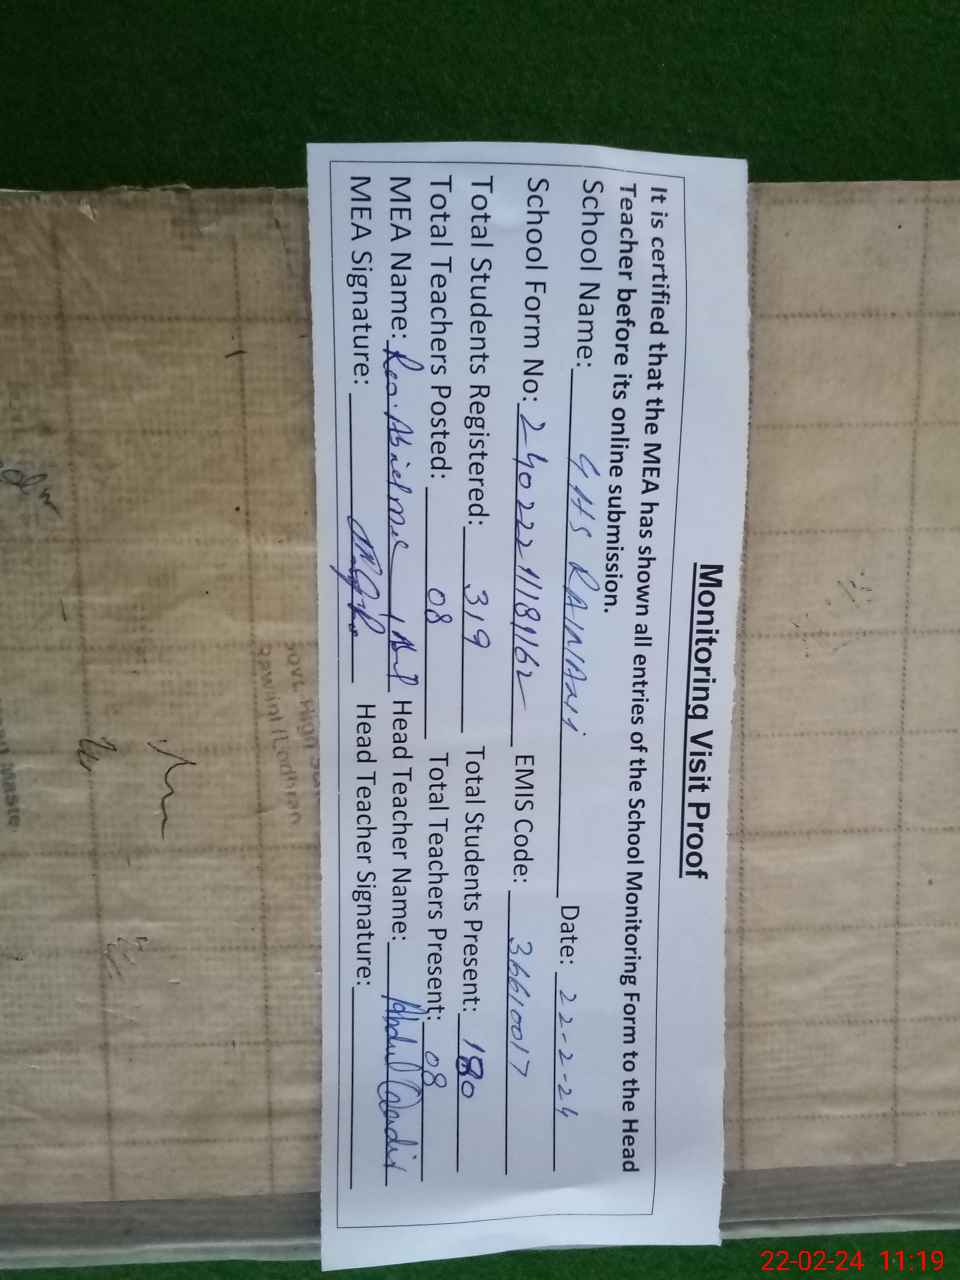 Monitoring Visit Proof
It is certified that the MEA has shown all entries of the School Monitoring Form to the Head
Teacher before its online submission.
School Name: GHS Date: 22-2-24
School Form No: EMIS Code: 36610017
Total Students Registered: 319 Total Students Present: 180
Total Teachers Posted: 08 Total Teachers Present: 08
MEA Name: Head Teacher Name: Abdul
MEA Signature: Head Teacher Signature:
Govt. High
22-02-24 11:19